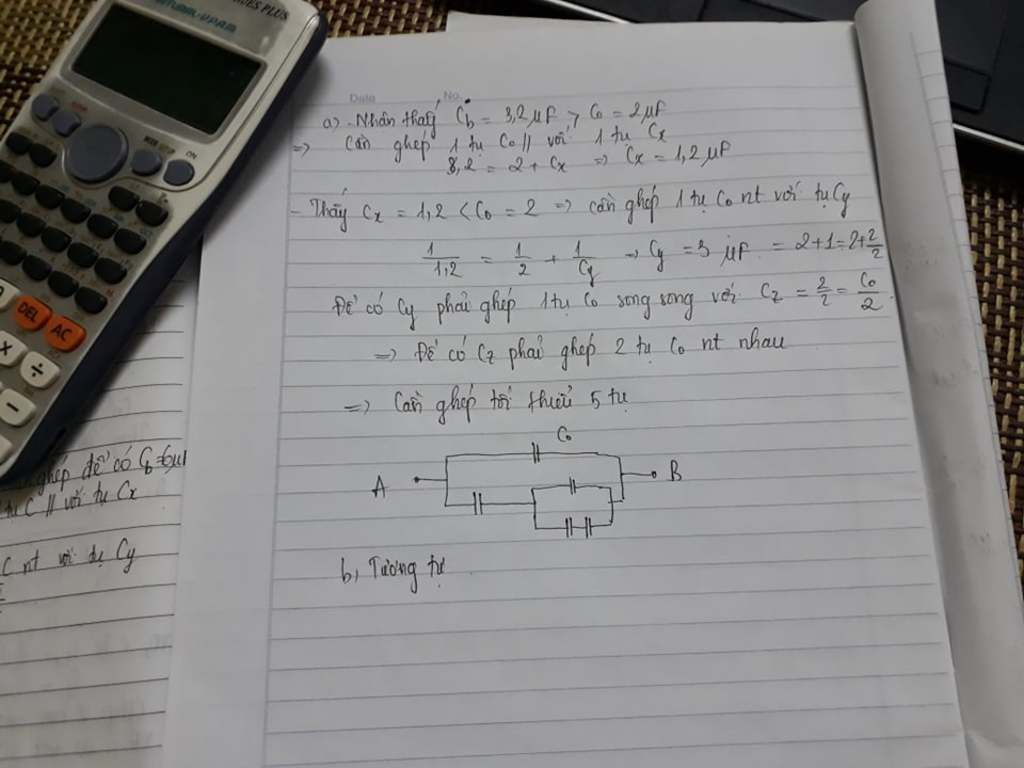 Date No.
a) - Nhận thấy Cb = 3,2 μF > C0 = 2μF
=> Cần ghép 1 tụ C0 // với 1 tụ Cx
3,2 = 2 + Cx => Cx = 1,2 μF
- Thấy Cx = 1,2 < C0 = 2 => cần ghép 1 tụ C0 nt với tụ Cy
1/1,2 = 1/2 + 1/Cy => Cy = 3 μF = 2+1 = 2+2/2
Để có Cy phải ghép 1 tụ C0 song song với Cz = 2/2 = C0/2.
=> Để có Cz phải ghép 2 tụ C0 nt nhau
=> Cần ghép tối thiểu 5 tụ
C0
A B
b, Tương tự
ghép để có
tụ C // với tụ Cx
C nt với tụ Cy
ON
DEL
AC
×
÷
−